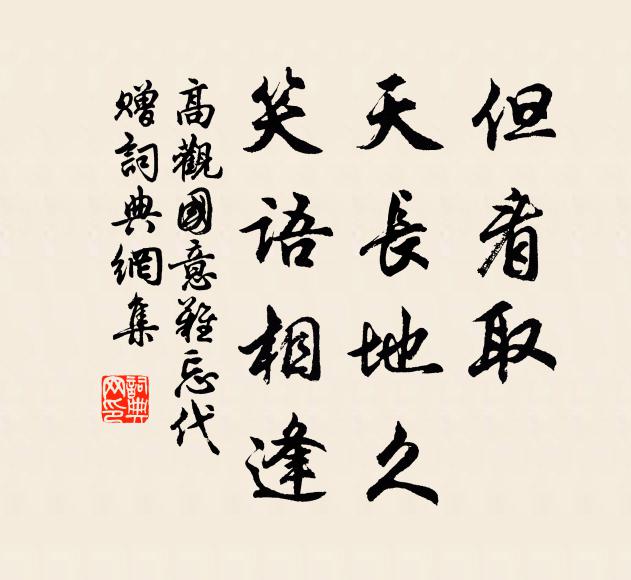 但看取
天長地久
笑語相逢
高觀國意難忘代
贈詞典網集
詞典网印